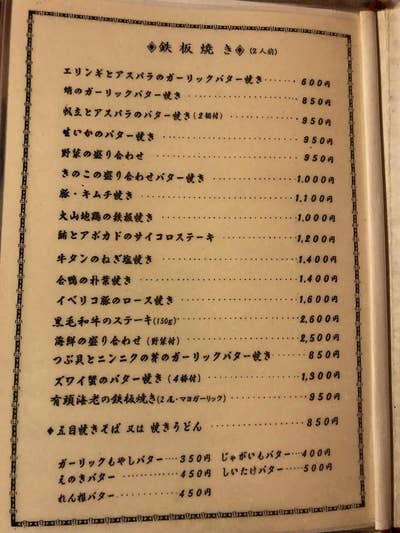 ◈鉄板焼き◈(2人前)
エリンギとアスパラのガーリックバター焼き……600円
蛸のガーリックバター焼き……850円
帆立とアスパラのバター焼き(2個付)……950円
生いかのバター焼き……950円
野菜の盛り合わせ……950円
きのこの盛り合わせバター焼き……1,000円
豚・キムチ焼き……1,100円
大山地鶏の鉄板焼き……1,000円
鮪とアボカドのサイコロステーキ……1,200円
牛タンのねぎ塩焼き……1,400円
合鴨の朴葉焼き……1,400円
イベリコ豚のロース焼き……1,600円
黒毛和牛のステーキ(150g)……2,600円
海鮮の盛り合わせ(野菜付)……2,500円
つぶ貝とニンニクの芽のガーリックバター焼き……850円
ズワイ蟹のバター焼き(4本付)……1,300円
有頭海老の鉄板焼き(2尾・マヨガーリック)……950円
◆五目焼きそば 又は 焼きうどん……850円
ガーリックもやしバター…350円 じゃがいもバター…400円
えのきバター……450円 しいたけバター……500円
れん根バター……450円